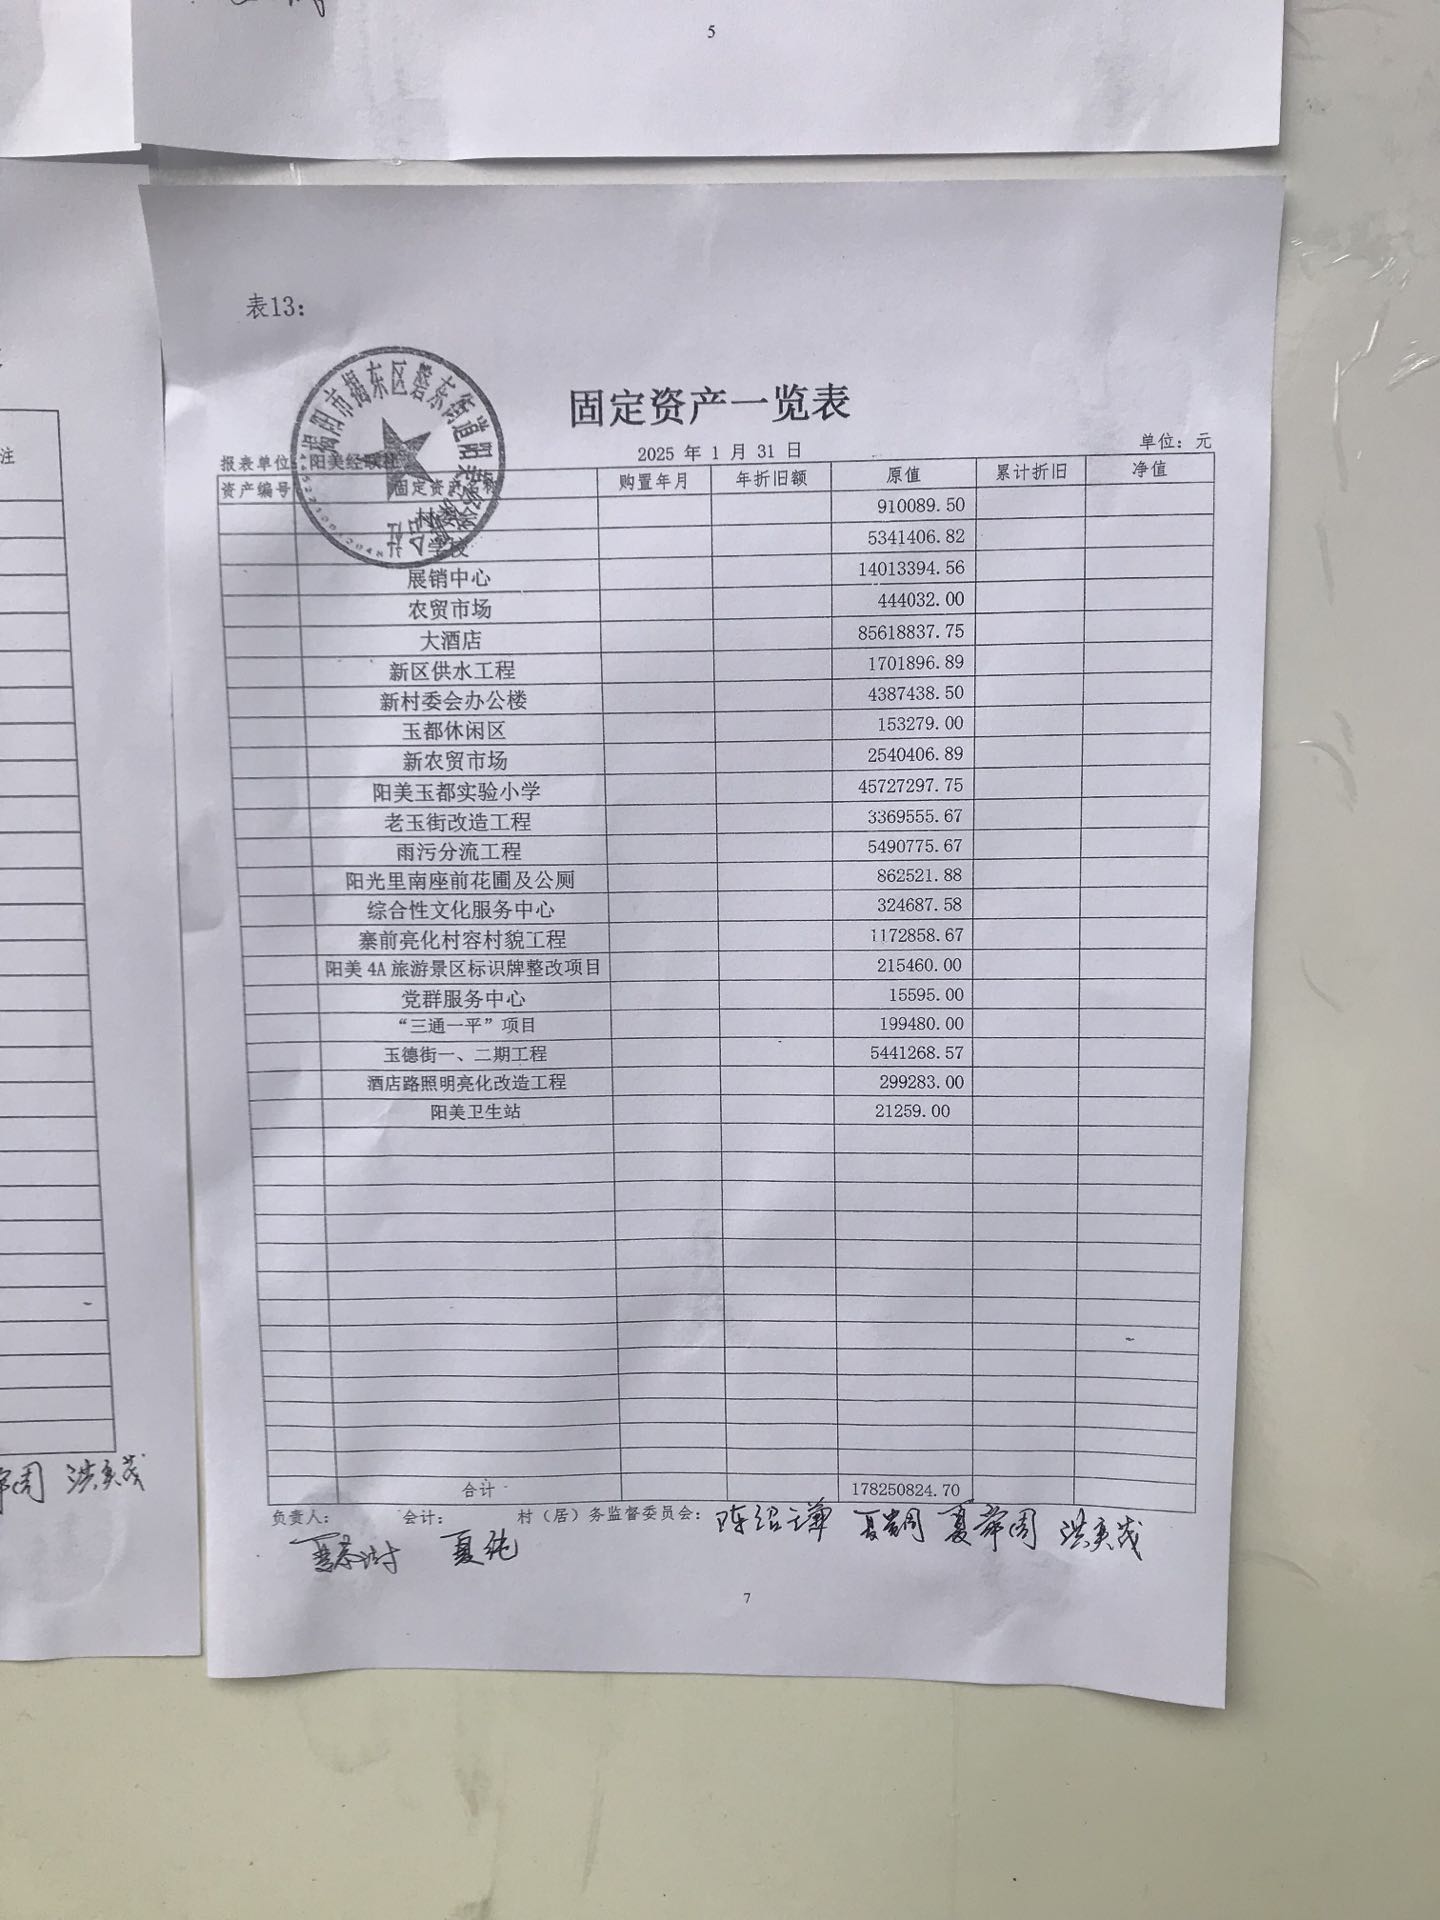 5
注
表13：
揭阳市揭东区磐东街道阳美经
固定资产一览表
报表单位：阳美经联社 2025 年 1 月 31 日 单位：元
资产编号 固定资产 称 购置年月 年折旧额 原值 累计折旧 净值
910089.50
学校 5341406.82
展销中心 14013394.56
农贸市场 444032.00
大酒店 85618837.75
新区供水工程 1701896.89
新村委会办公楼 4387438.50
玉都休闲区 153279.00
新农贸市场 2540406.89
阳美玉都实验小学 45727297.75
老玉街改造工程 3369555.67
雨污分流工程 5490775.67
阳光里南座前花圃及公厕 862521.88
综合性文化服务中心 324687.58
寨前亮化村容村貌工程 1172858.67
阳美4A旅游景区标识牌整改项目 215460.00
党群服务中心 15595.00
“三通一平”项目 199480.00
玉德街一、二期工程 5441268.57
酒店路照明亮化改造工程 299283.00
阳美卫生站 21259.00
合计 178250824.70
负责人： 会计： 村（居）务监督委员会：
夏纯
7